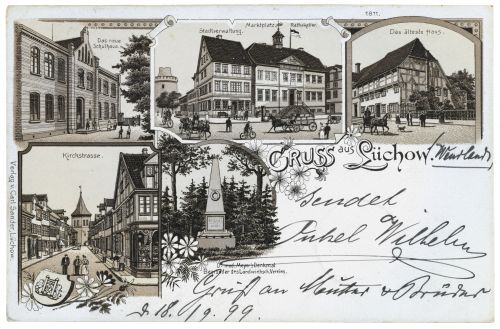 1811.
Das neue Schulhaus.
Stadtverwaltung.
Marktplatz
Rathskeller.
Das älteste Haus.
Kirchstrasse.
GRUSS aus Lüchow.
(Wendland)
Sendet
Onkel Wilhelm
Denkmal
Begründer des Landwirthsch. Vereins.
Gruß an Mutter u Brüder
d. 18./9. 99.
Verlag v. Carl Sander, Lüchow.